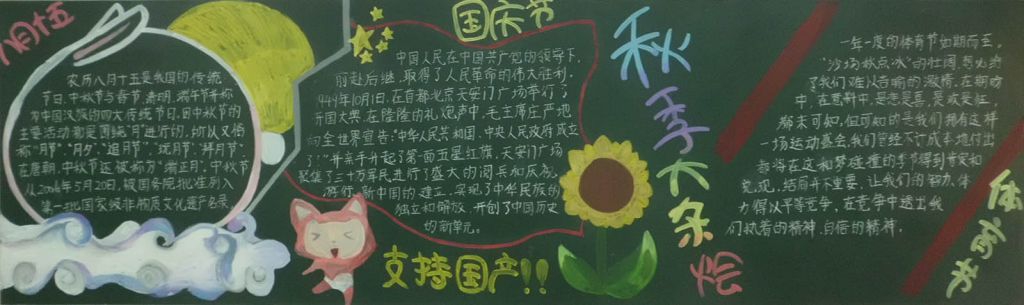 八月十五
农历八月十五是我国的传统
节日,中秋节与春节、清明、端午节并称
为中国汉族的四大传统节日,因中秋节的
主要活动都是围绕"月"进行的,所以又俗称
"月节"、"月夕"、"追月节"、"玩月节"、"拜月节".
在唐朝,中秋节还被称为"端正月".中秋节
从2006年5月20日,被国务院批准列入
第一批国家级非物质文化遗产名录.
国庆节
中国人民在中国共产党的领导下,
前赴后继,取得了人民革命的伟大胜利.
1949年10月1日,在首都北京天安门广场举行了
开国大典,在隆隆的礼炮声中,毛主席庄严地
向全世界宣告:"中华人民共和国,中央人民政府成立
了!"并亲手升起了第一面五星红旗,天安门广场
聚集了三十万军民进行了盛大的阅兵和庆祝
游行,新中国的建立,实现了中华民族的
独立和解放,开创了中国历史
的新单元。
支持国产!!
秋季大杂烩
一年一度的体育节如期而至,
"沙场秋点兵"的壮阔
了我们难以名喻的激情,在期盼
中,在荒野中,是悲是喜,是哀是狂,
都未可知,但可知的是我们拥有这样
一场运动盛会,我们曾经不
都将在这和梦碰撞的季节得到肯定和
兑现,结局并不重要,让我们的智力、体
力得以平等竞争,在竞争中透出我
们执着的精神,自信的精神.
体育节